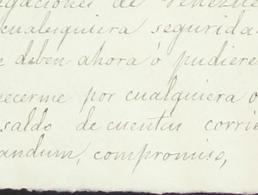 igaciones de Venezuel
cualesquiera segurida
e deben ahora ó pudiere
ecerme por cualquiera o
saldo de cuentas corri
andum, compromiso,